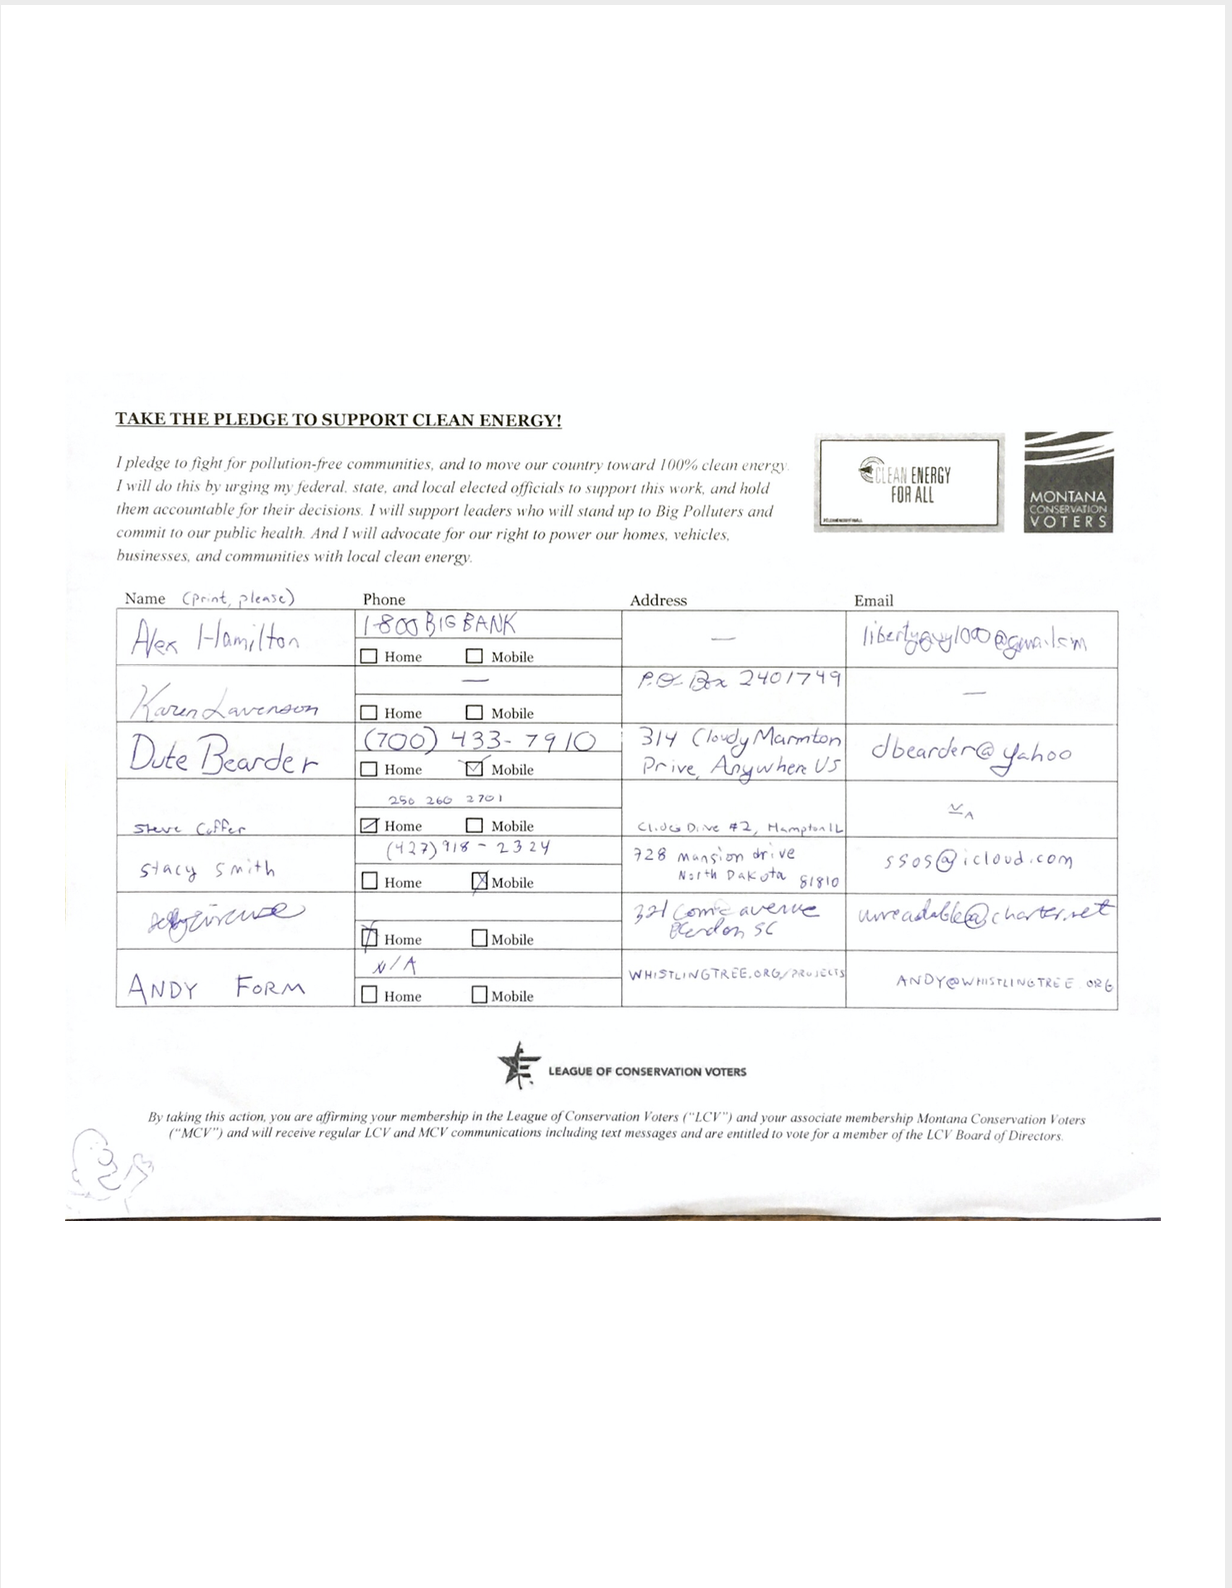 TAKE THE PLEDGE TO SUPPORT CLEAN ENERGY!
I pledge to fight for pollution-free communities, and to move our country toward 100% clean energy.
I will do this by urging my federal, state, and local elected officials to support this work, and hold
them accountable for their decisions. I will support leaders who will stand up to Big Polluters and
commit to our public health. And I will advocate for our right to power our homes, vehicles,
businesses, and communities with local clean energy.
CLEAN ENERGY
FOR ALL
MONTANA
CONSERVATION
VOTERS
Name (print, please) Phone Address Email
Alex Hamilton 1-800 BIG BANK — libertyguy1000@gmail.com
Home Mobile
Karen Lavenson — P.O. Box 2401749 —
Home Mobile
Dute Bearder (700) 433-7910 314 Cloudy Marmton dbearder@yahoo
Home Mobile Drive, Anywhere US
250 260 2701
Steve Home Mobile Dive #2, Hampton IL
(427) 918-2324 728 mansion drive ssos@icloud.com
Stacy Smith North Dakota 81810
Home Mobile
321 avenue unreadable@charter.net
SC
Home Mobile
N/A WHISTLINGTREE.ORG/PROJECTS ANDY@WHISTLINGTREE.ORG
ANDY FORM
Home Mobile
LEAGUE OF CONSERVATION VOTERS
By taking this action, you are affirming your membership in the League of Conservation Voters ("LCV") and your associate membership Montana Conservation Voters
("MCV") and will receive regular LCV and MCV communications including text messages and are entitled to vote for a member of the LCV Board of Directors.